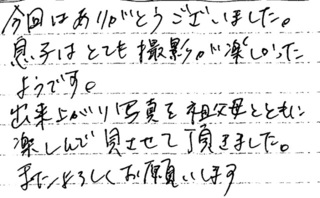 今回はありがとうございました。
息子はとても撮影が楽しかった
ようです。
出来上がり写真を祖父母とともに
楽しんで見させて頂きました。
またよろしくお願いします